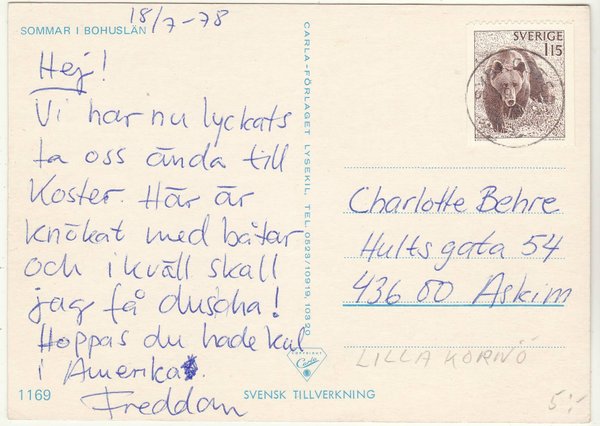 SOMMAR I BOHUSLÄN
18/7-78
Hej!
Vi har nu lyckats
ta oss ända till
Koster. Här är
knökat med båtar
och ikväll skall
jag få duscha!
Hoppas du hade kul
i Amerika.
Freddan
1169
SVENSK TILLVERKNING
CARLA-FÖRLAGET LYSEKIL TEL. 0523/10919, 10390
COPYRIGHT
Carla
SVERIGE
115
Charlotte Behre
Hultsgata 54
436 00 Askim
LILLA KORNÖ
5:-